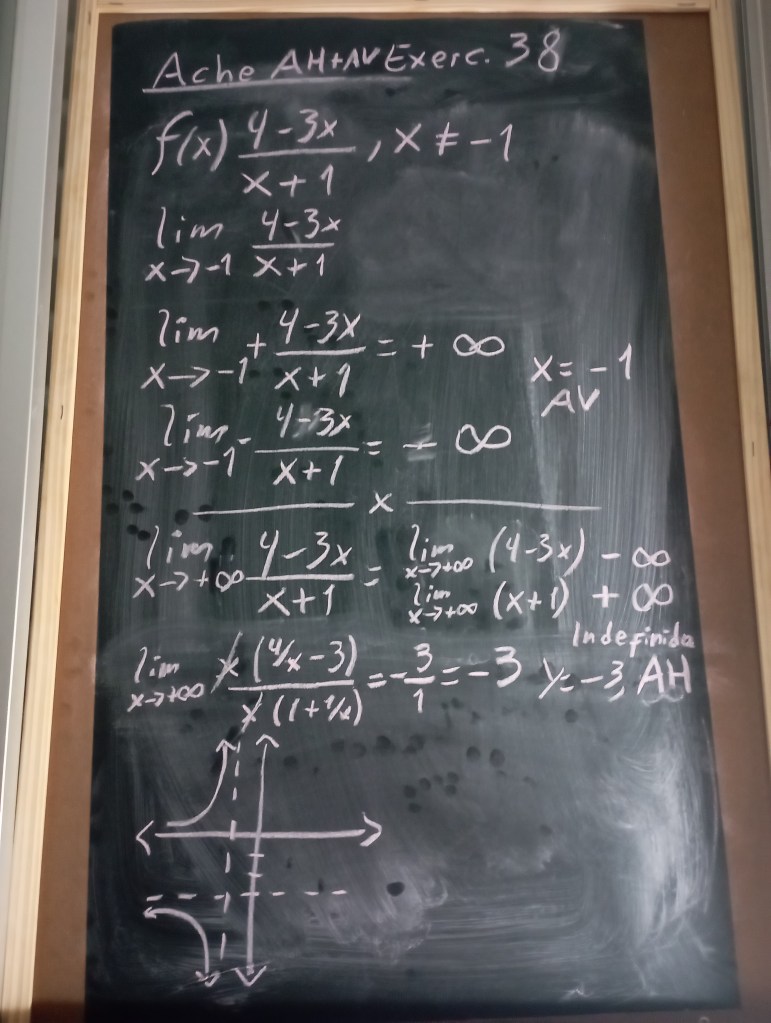 Ache AH+AV Exerc. 38
f(x) 4-3x / x+1 , x ≠ -1
lim x→-1 4-3x / x+1
lim x→-1 + 4-3x / x+1 = + ∞
x = -1
AV
lim x→-1 - 4-3x / x+1 = - ∞
x
lim x→+∞ 4-3x / x+1 = lim x→+∞ (4-3x) - ∞
lim x→+∞ (x+1) + ∞
Indefinido
lim x→+∞ x (4/x - 3) / x (1 + 1/x) = - 3/1 = -3 y = -3, AH